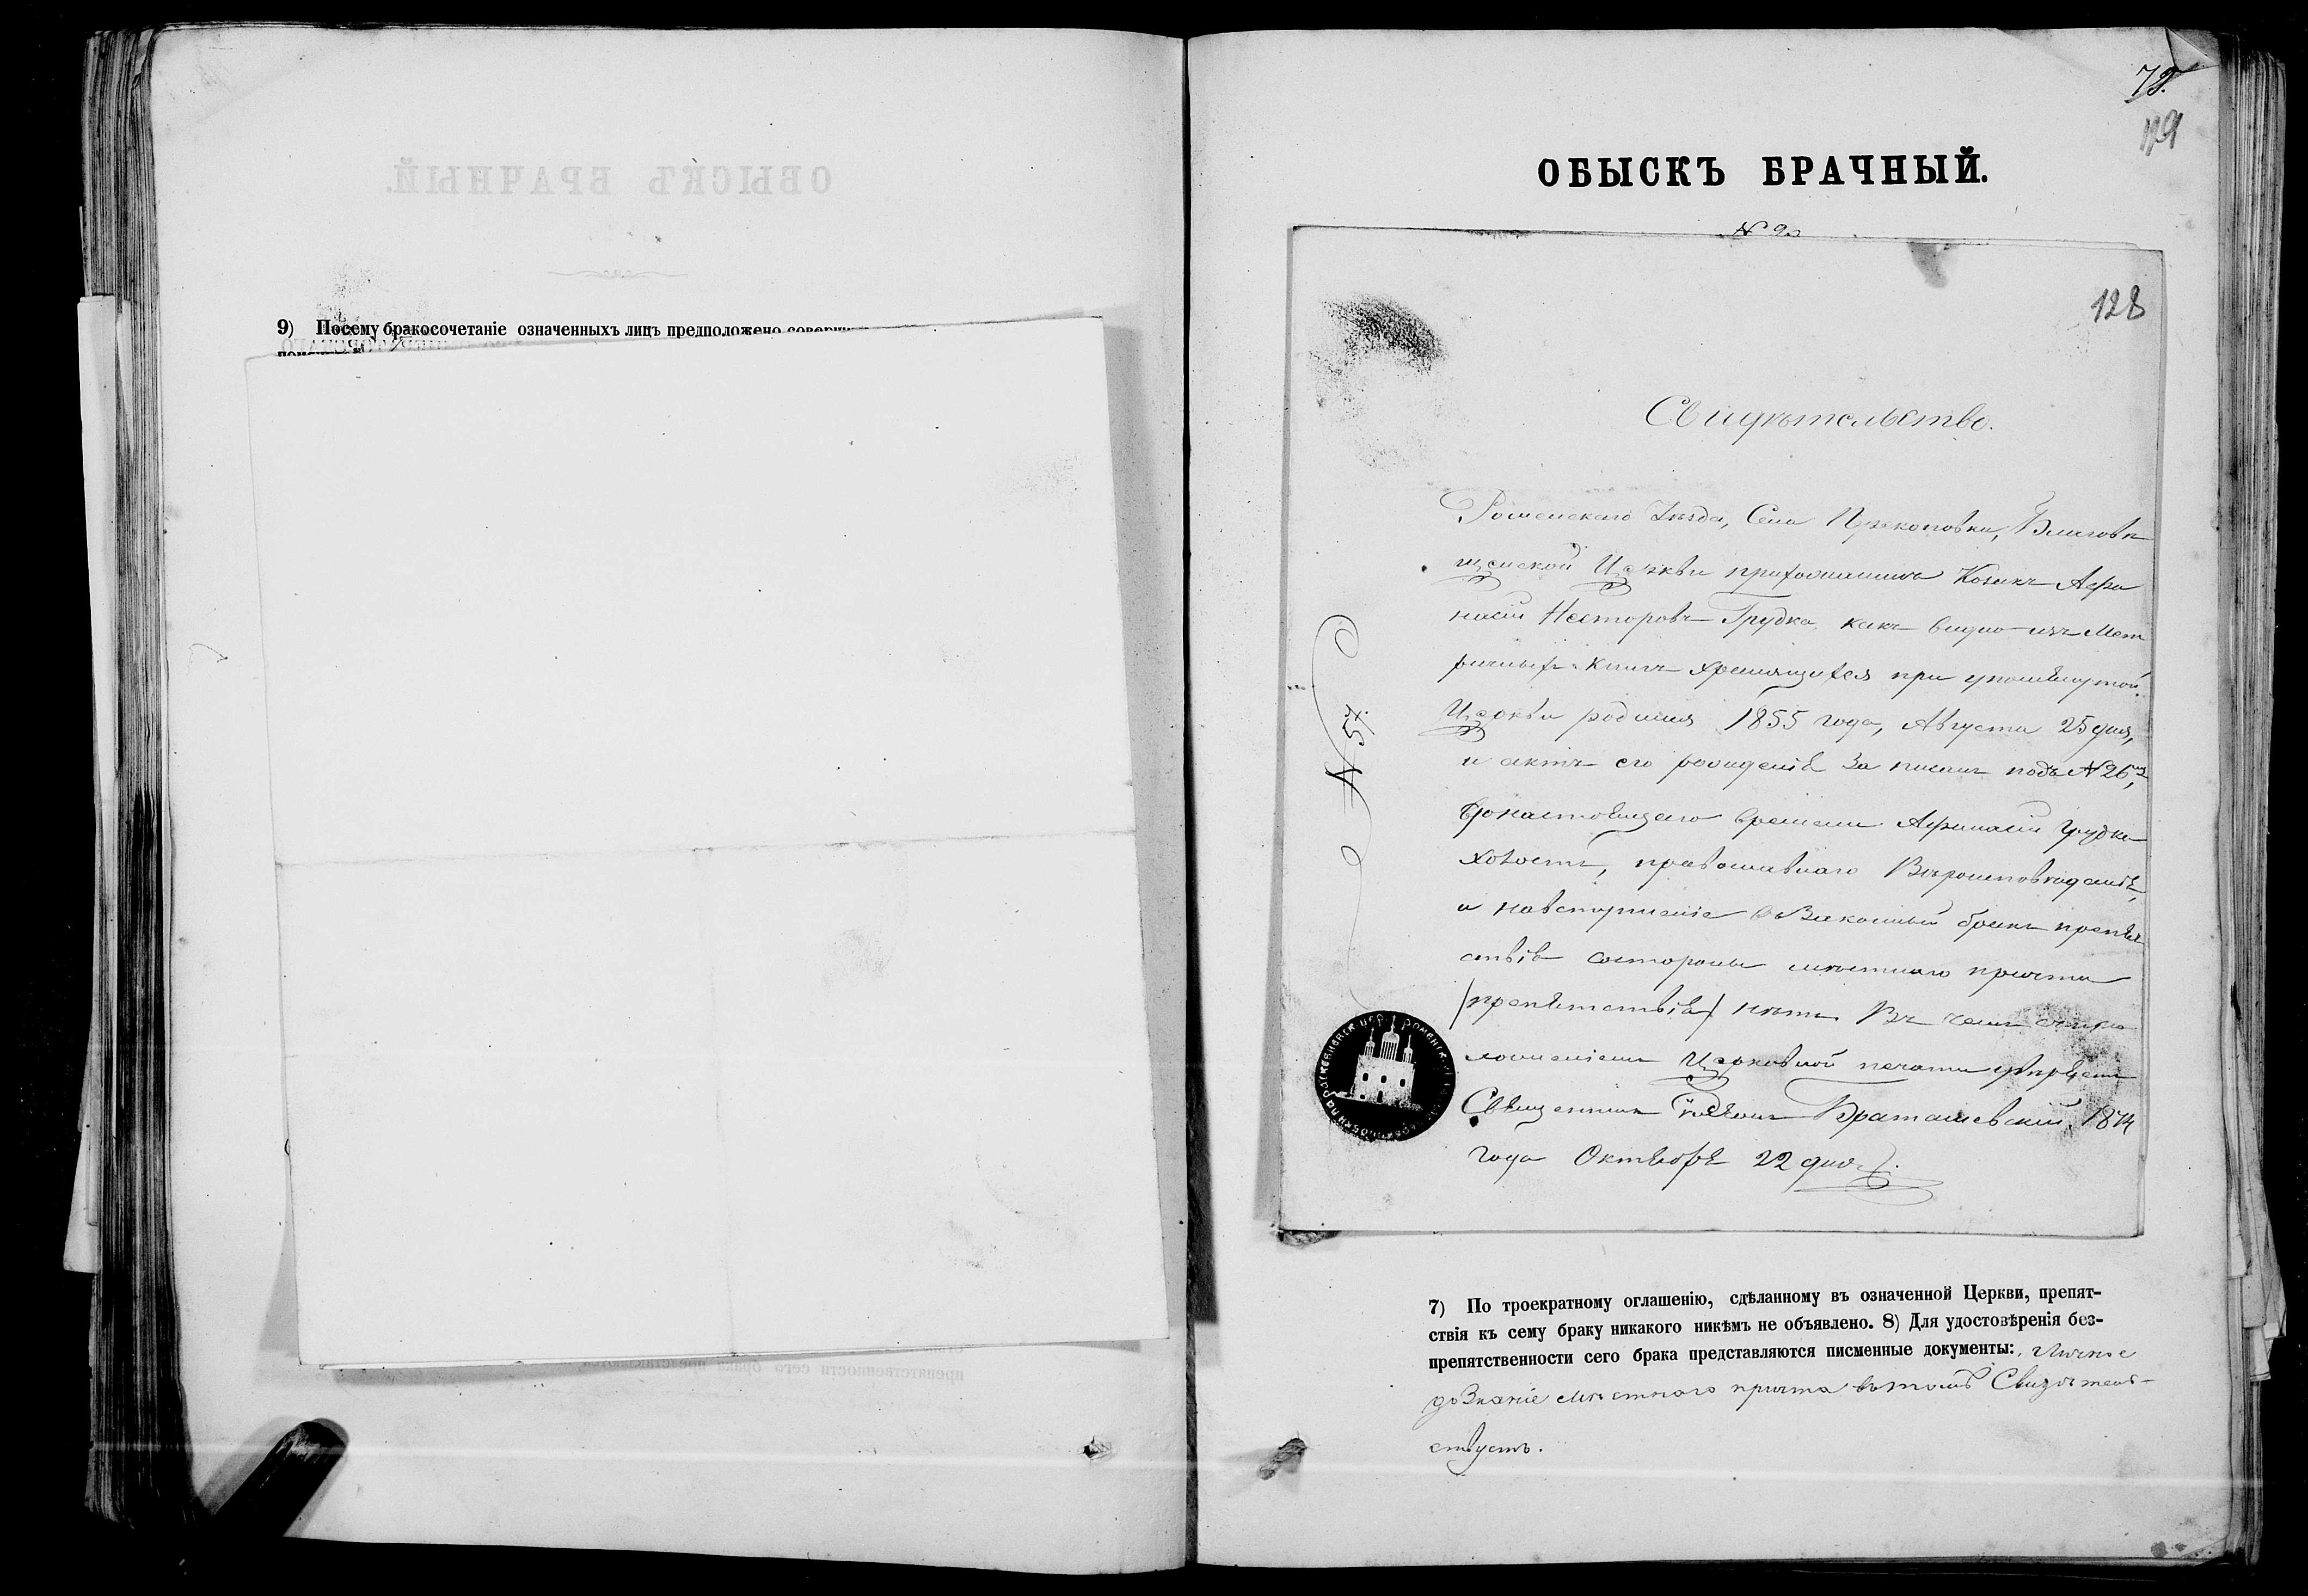 9) Посему бракосочетаніе означенныхъ лицъ предположено
78.
119
ОБЫСКЪ БРАЧНЫЙ.
128
Свидѣтельство.
Роменскаго Уѣзда, Села Прокоповки, Благовѣ
щенской Церкви прихожанинъ Козакъ Афа
насій Несторовъ Грудка, какъ видно изъ Мет
ричныхъ книгъ хренящихся при упомянутой
Церкви родился 1855 года, Августа 25 дня,
и актъ его рожденія За писанъ подъ №26,
до настоящаго времени Афанасій Грудка
холостъ, православнаго Вѣроисповѣданія,
и навступленіе въ Законный бракъ препят
ствія состороны мѣстнаго причта
/препятствія/ нѣтъ Въ чемъ съ прило
женіемъ Церковной печати
Священникъ Браташевскій 1874
года Октября 22 дня.
№ 57.
7) По троекратному оглашенію, сдѣланному въ означенной Церкви, препят-
ствія къ сему браку никакого никѣмъ не объявлено. 8) Для удостовѣренія без-
препятственности сего брака представляются писменные документы: Личное
дознаніе мѣстнаго причта въ томъ Свидѣтель-
ствуетъ.